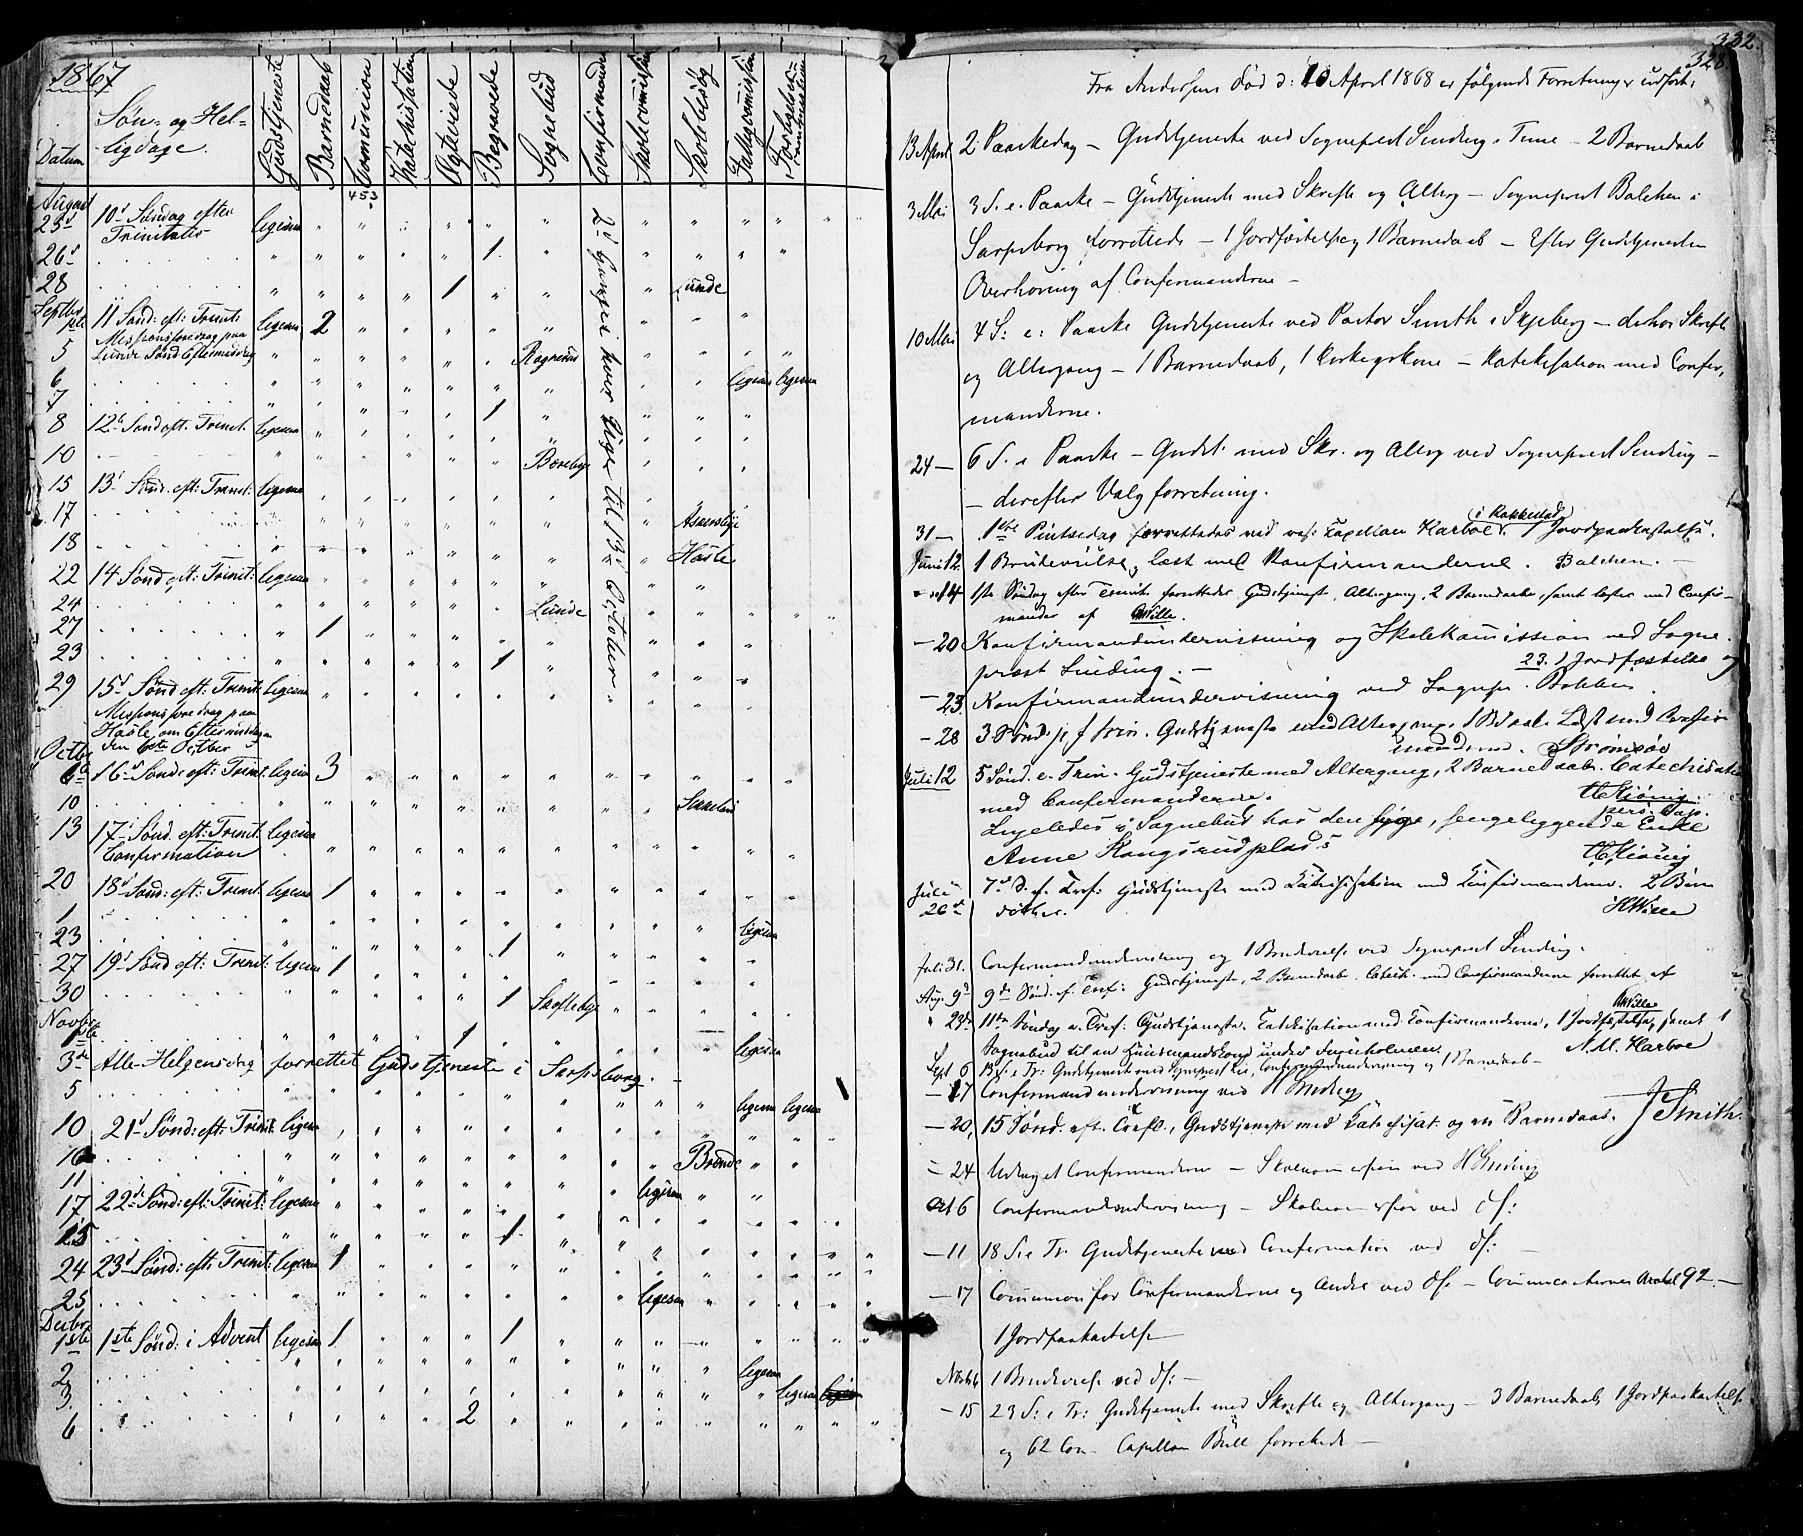 1867
Søn- og Hel-
ligdage.
Datum
Gudstjeneste
Barnedaab
Communion
Katechisation
Ægteviede
Begravede
Sognebud
Confirmander
Skolecommission
Skolebesøg
Fattigcommission
453
August
25d 10d Søndag efter ligesaa
Trinitatis
26d 1
28 1 Lunde
Septbr
1ste 11 Sønd: eft: Trinit: ligesaa 2
Missionsforedrag paa
5 Lunde Sønd Eftermiddag
6 ligesaa ligesaa
7 1
8 12d Sønd eft. Trinit. ligesaa
10
15 13d Sønd. eft: Trinit: ligesaa
17
18 Hasle
22 14 Sønd eft: Trinit: ligesaa
24 Lunde
27 1
23 1
29 15d Sønd eft: Trinit: ligesaa
Missionsforedrag paa
Hasle om Eftermiddagen
den 6te October
2d Gange hver Uge til 13d October.
Octbr
6te 16d Sønd: eft: Trinit: ligesaa 3
10
13 17d Sønd. eft: Trinit: ligesaa
Confirmation
20 18d Sønd: eft: Trinit: ligesaa 1
1 ligesaa
23 1
27 19d Sønd eft: Trinit: ligesaa 1
30 1
Novbr
1ste 1 ligesaa
3de Alle-Helgensdag forrettet Gudstjeneste i Sarpsborg.
5 ligesaa ligesaa
10 21d Sønd: eft: Trinit: ligesaa
10
11 ligesaa
17 22de Sønd: eft: Trinit: ligesaa
15 1
24 23d Sønd: eft: Trinit: ligesaa 1
25 ligesaa
Decbr
1ste 1ste Sønd: i Advent ligesaa 1 1
2 ligesaa
3. ligesaa
6 2
332.
328.
Fra Andersens Død d: 10 April 1868 er følgende Forretninger udført:
13 April 2 Paaskedag – Gudstjeneste ved Sognepræst Sinding i Tune – 2 Barnedaab
3 Mai 3 S. e. Paaske – Gudstjeneste med Skrifte og Alterg – Sognepræst Balchen i
Sarpsborg forrettede – 1 Jordfæstelse og 1 Barnedaab – Efter Gudstjenesten
Overhøring af Confirmanderne –
10 Mai 4 S: e: Paaske Gudstjeneste ved Pastor Smith i Skjeberg – derhos Skrifte
og Altergang – 1 Barnedaab, 1 Kirkegangskone – Katekisation med Confir,
manderne.
24 – 6 S. e Paaske – Gudst. med Skr. og Alterg ved Sognepræst Sinding –
– derefter Valgforretning.
31 – 1ste Pintsedag forrettedes ved res: Capellan Harboe i Rakkestad. 1 Jordpaakastelse.
Juni 12 1 Brudevielse, læst med Konfirmanderne. Balchen. –
14 1ste Søndag efter Trinit. forrettedes Gudstjeneste, Altergang, 2 Barnedaab, samt læstes med Confir-
mander af Wille.
– 20 Konfirmandundervisning og Skolekomission ved Sogne
præst Sinding. –
23. 1 Jordfæstelse og
– 23. Konfirmandundervisning ved Sognepr. Balchen.
– 28 3 Sønd. e. Trin. Gudstjeneste med Altergang, 1 B:daab. Læst med Confir-
manderne. Strømsøe
Juli 12 5 Sønd. e. Trin. Gudstjeneste med Altergang, 2 Barnedaab. Catechisation
med Confirmanderne.
pers. Cap.
Ligeledes i Sognebud hos den syge, sengeliggende Enke
Anne
Juli 7d S. e. Gudstjeneste med Katechisation med Confirmanderne. 2 Børn
26d døbtes. Wille
Juli 31. Confirmandundervisning og 1 Brudevielse ved Sognepræst Sinding.
Aug. 9d 9de Sønd. e. Gudstjeneste, 2 Barnedaab. Catech. med Confirmanderne forrettet af
Wille
" 23de 11te Søndag e. Gudstjeneste. Catekisation med Confirmanderne, 1 Jordfæstelse, samt 1
Sognebud til en Huusmandskone under
N. M. Harboe
Sept 6 Gudstjeneste Confirmandundervisning og 1 Barnedaab –
– 17 Confirmandundervisning ved H Sinding
– 20, 15 Sønd. eft. Gudstjeneste med Katechisat. og en Barnedaab. J Smith.
– 24 Confirmanderne – Skolecommission ved H Sinding
Oct 6 Confirmandundervisning – Skolecommission ved ds:
– 11 18 S: e Tr: Gudstjeneste med Confirmation ved ds: –
– 17 Communion for Confirmanderne og Andre ved ds – Communicanternes Antal 92 –
1 Jordpaakastelse
1 Brudevielse ved ds: –
– 15 23 S: e Tr: Gudstjeneste med Skrifte og Altergang – 3 Barnedaab, 1 Jordpaakastelse
og 62 Com – Capellan Bull forrettede –